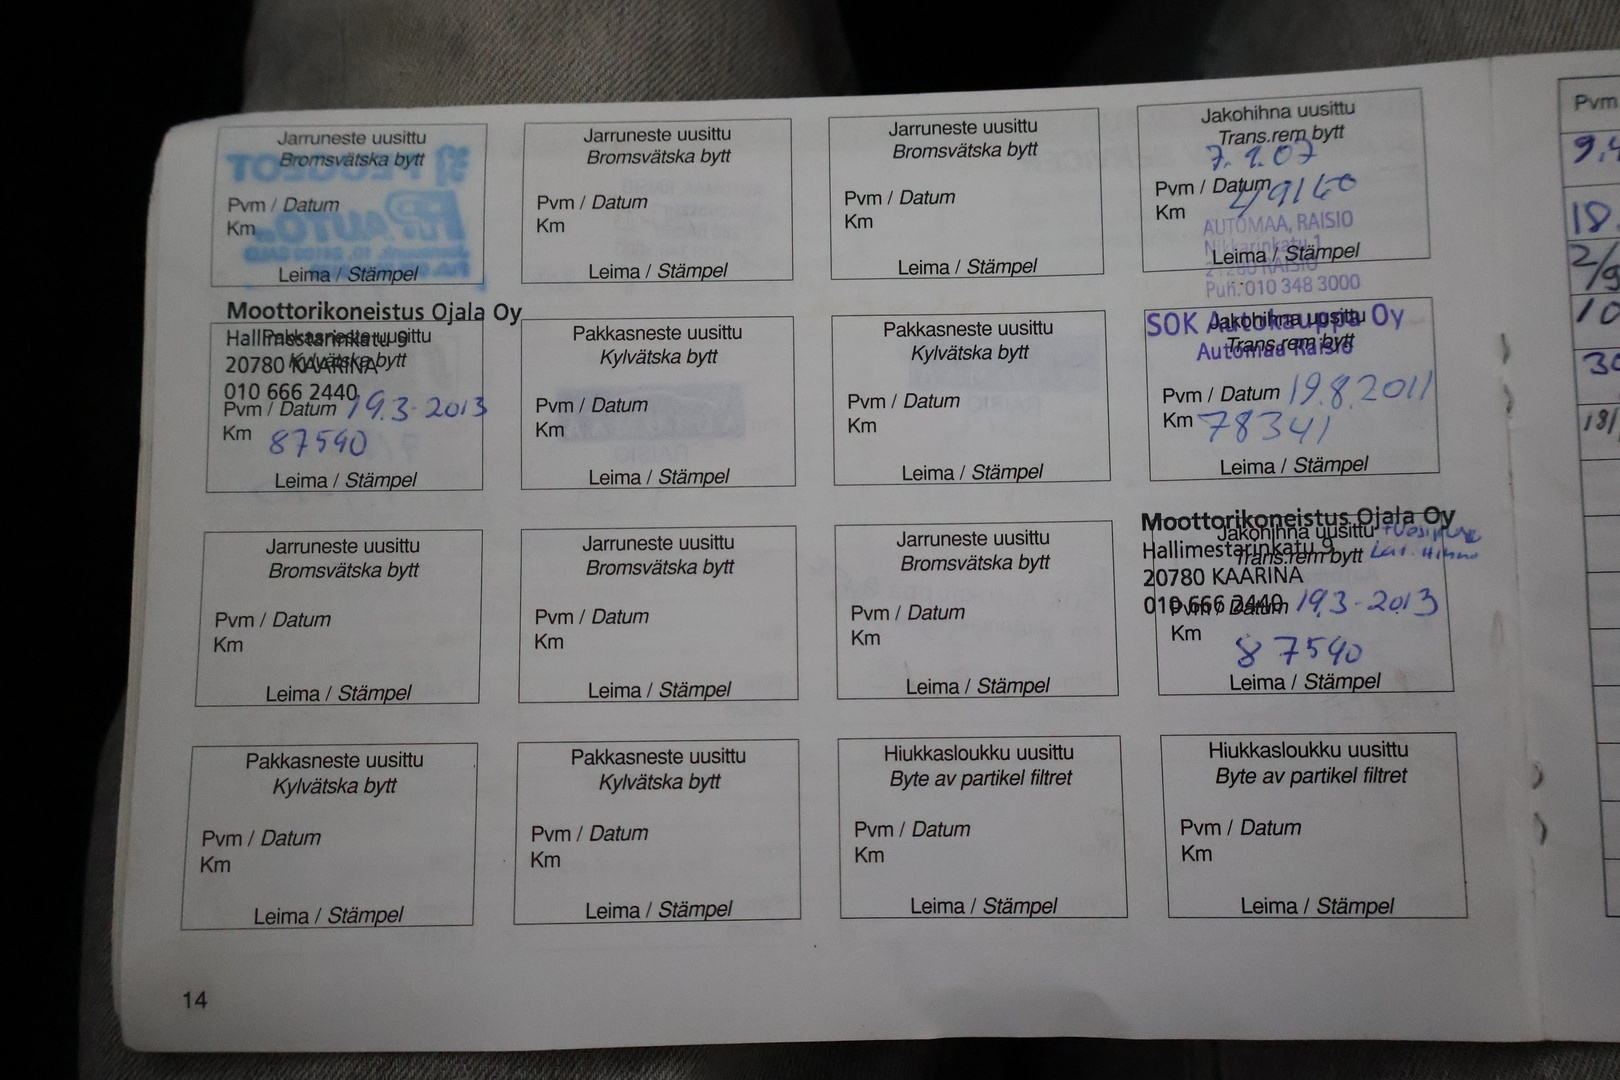 Jarruneste uusittu
Bromsvätska bytt
Pvm / Datum
Km
Leima / Stämpel
Jarruneste uusittu
Bromsvätska bytt
Pvm / Datum
Km
Leima / Stämpel
Jarruneste uusittu
Bromsvätska bytt
Pvm / Datum
Km
Leima / Stämpel
Jakohihna uusittu
Trans.rem bytt
7.1.07
Pvm / Datum
49160
Km
AUTOMAA, RAISIO
Nikkarinkatu 1
21280 RAISIO
Leima / Stämpel
Puh. 010 348 3000
Moottorikoneistus Ojala Oy
Hallimestarinkatu 9
20780 KAARINA
010 666 2440
Pakkasneste uusittu
Kylvätska bytt
Pvm / Datum 19.3-2013
Km 87590
Leima / Stämpel
Pakkasneste uusittu
Kylvätska bytt
Pvm / Datum
Km
Leima / Stämpel
Pakkasneste uusittu
Kylvätska bytt
Pvm / Datum
Km
Leima / Stämpel
SOK Autokauppa Oy
Automaa Raisio
Jakohihna uusittu
Trans.rem bytt
Pvm / Datum 19.8.2011
Km 78341
Leima / Stämpel
Jarruneste uusittu
Bromsvätska bytt
Pvm / Datum
Km
Leima / Stämpel
Jarruneste uusittu
Bromsvätska bytt
Pvm / Datum
Km
Leima / Stämpel
Jarruneste uusittu
Bromsvätska bytt
Pvm / Datum
Km
Leima / Stämpel
Moottorikoneistus Ojala Oy
Hallimestarinkatu 9
20780 KAARINA
010 666 2440
Jakohihna uusittu
Trans.rem bytt
Pvm / Datum 19.3-2013
Km
87590
Leima / Stämpel
Pakkasneste uusittu
Kylvätska bytt
Pvm / Datum
Km
Leima / Stämpel
Pakkasneste uusittu
Kylvätska bytt
Pvm / Datum
Km
Leima / Stämpel
Hiukkasloukku uusittu
Byte av partikel filtret
Pvm / Datum
Km
Leima / Stämpel
Hiukkasloukku uusittu
Byte av partikel filtret
Pvm / Datum
Km
Leima / Stämpel
14
Pvm